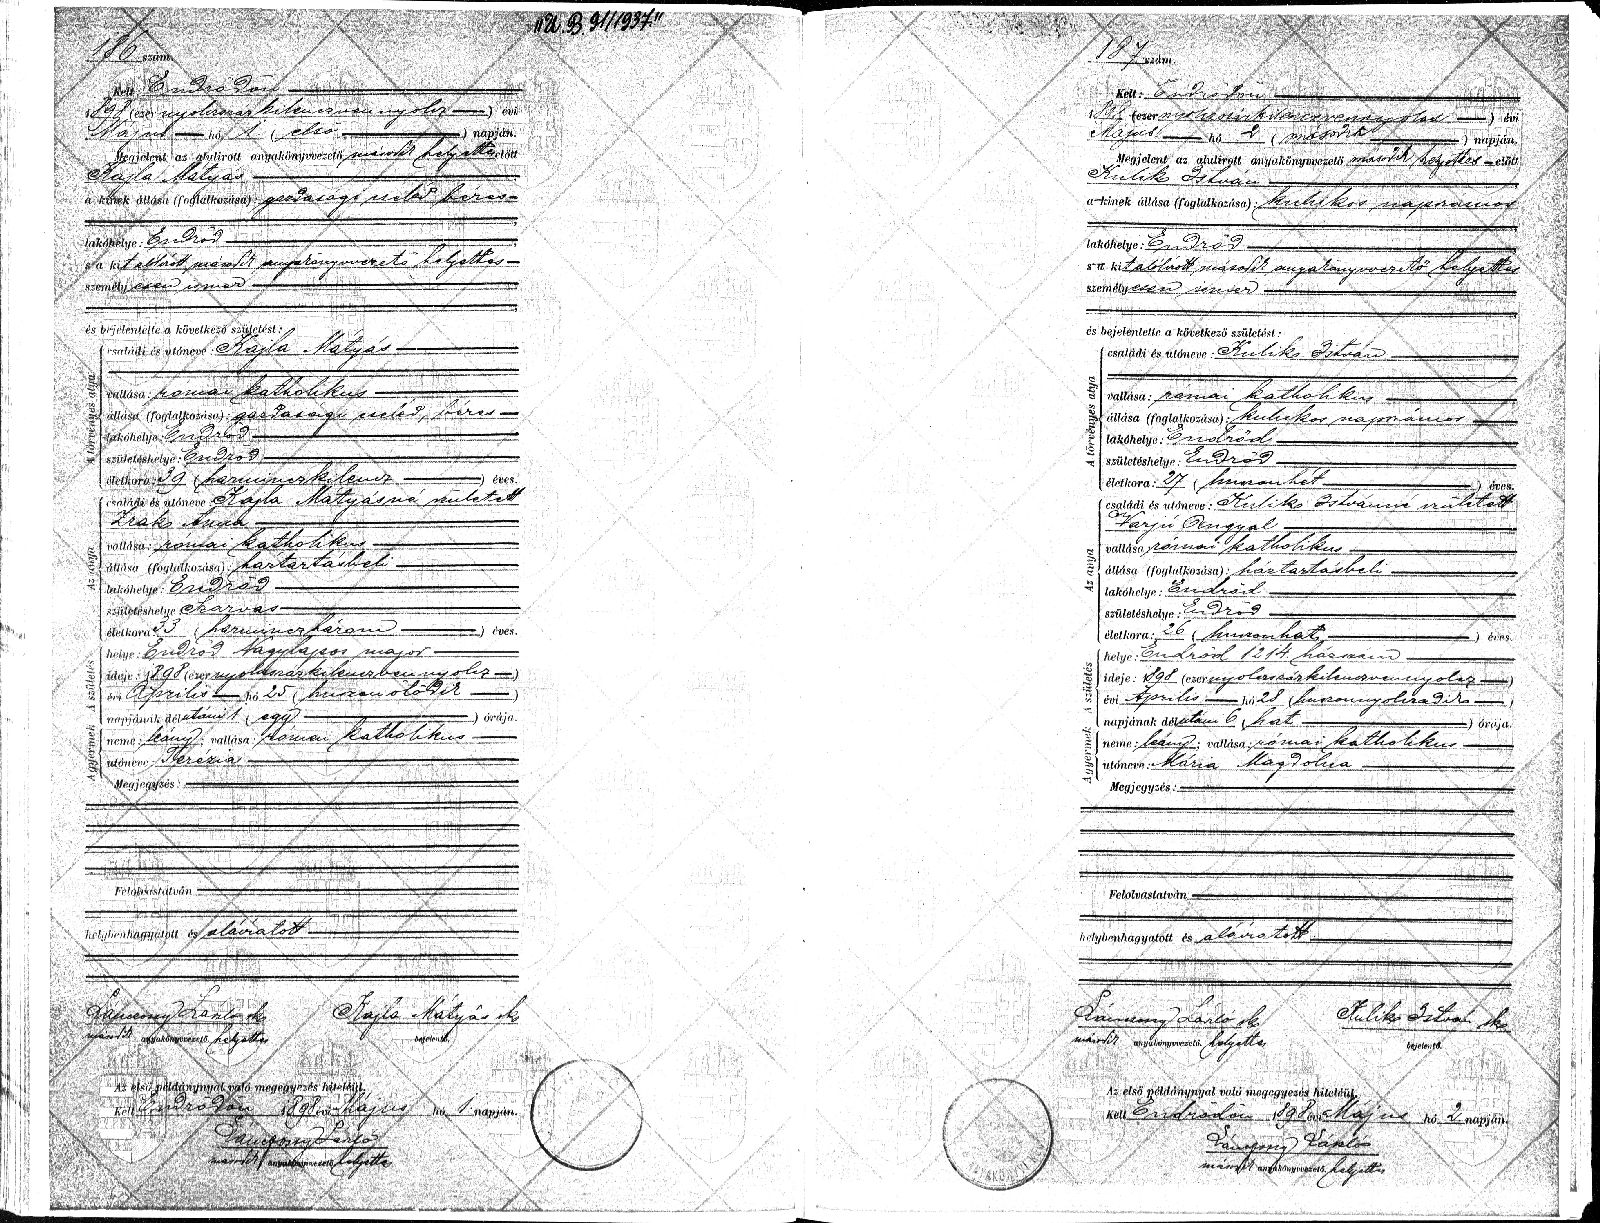 "U. B. 91/1937."
186 szám.
Kelt Endrődön
1898 (ezer nyolcszázkilenczvennyolcz) évi
Május hó 1 (első) napján.
Megjelent az alulirott anyakönyvvezető második helyettes előtt
Kajla Mátyás
a kinek állása (foglalkozása): gazdasági cseléd béres
lakóhelye: Endrőd
s a kit alólirott második anyakönyvvezető helyettes
személyesen ismer
és bejelentette a következő születést:
A törvényes atya
családi és utóneve: Kajla Mátyás
vallása: római katholikus
állása (foglalkozása): gazdasági cseléd, béres
lakóhelye: Endrőd
születéshelye: Endrőd
életkora: 39 (harminczkilencz) éves.
Az anya
családi és utóneve Kajla Mátyásné született
Zrak Anna
vallása: római katholikus
állása (foglalkozása): háztartásbeli
lakóhelye: Endrőd
születéshelye Szarvas
életkora 33 (harminczhárom) éves.
A születés
helye: Endrőd Nagylapos major
ideje: 1898 (ezer nyolczszázkilenczvennyolcz)
évi Április hó 25 (huszonötödik)
napjának délutáni 1 (egy) órája.
A gyermek
neme: leány; vallása: római katholikus
utóneve: Terézia
Megjegyzés:
Felolvastatván
helybenhagyatott és aláiratott
László sk Kajla Mátyás sk
második anyakönyvvezető. helyettes bejelentő.
Az első példánynyal való megegyezés hiteléül.
Kelt Endrődön 1898 évi Május hó 1 napján.
László
második anyakönyvvezető. helyettes
187 szám.
Kelt: Endrődön
1898 (ezer nyolczszázkilenczvennyolcz) évi
Május hó 2 (második) napján.
Megjelent az alulirott anyakönyvvezető második helyettes előtt
Kulik István
a kinek állása (foglalkozása): kubikos napszámos
lakóhelye: Endrőd
s a kit alólirott második anyakönyvvezető helyettes
személyesen ismer
és bejelentette a következő születést:
A törvényes atya
családi és utóneve: Kulik István
vallása: római katholikus
állása (foglalkozása): kubikos napszámos
lakóhelye: Endrőd
születéshelye: Endrőd
életkora: 27 (huszonhét) éves.
Az anya
családi és utóneve: Kulik Istvánné született
Varju Angyal
vallása római katholikus
állása (foglalkozása): háztartásbeli
lakóhelye: Endrőd
születéshelye: Endrőd
életkora: 26 (huszonhat) éves.
A születés
helye: Endrőd 1214 házszám
ideje: 1898 (ezer nyolczszázkilenczvennyolcz)
évi Április hó 28 (huszonnyolczadik)
napjának délutáni 6 (hat) órája.
A gyermek
neme: leány; vallása: római katholikus
utóneve: Mária Magdolna
Megjegyzés:
Felolvastatván
helybenhagyatott és aláiratott
László sk Kulik István sk
második anyakönyvvezető. helyettes bejelentő.
Az első példánynyal való megegyezés hiteléül.
Kelt Endrődön 1898 évi Május hó 2 napján.
László
második anyakönyvvezető. helyettes